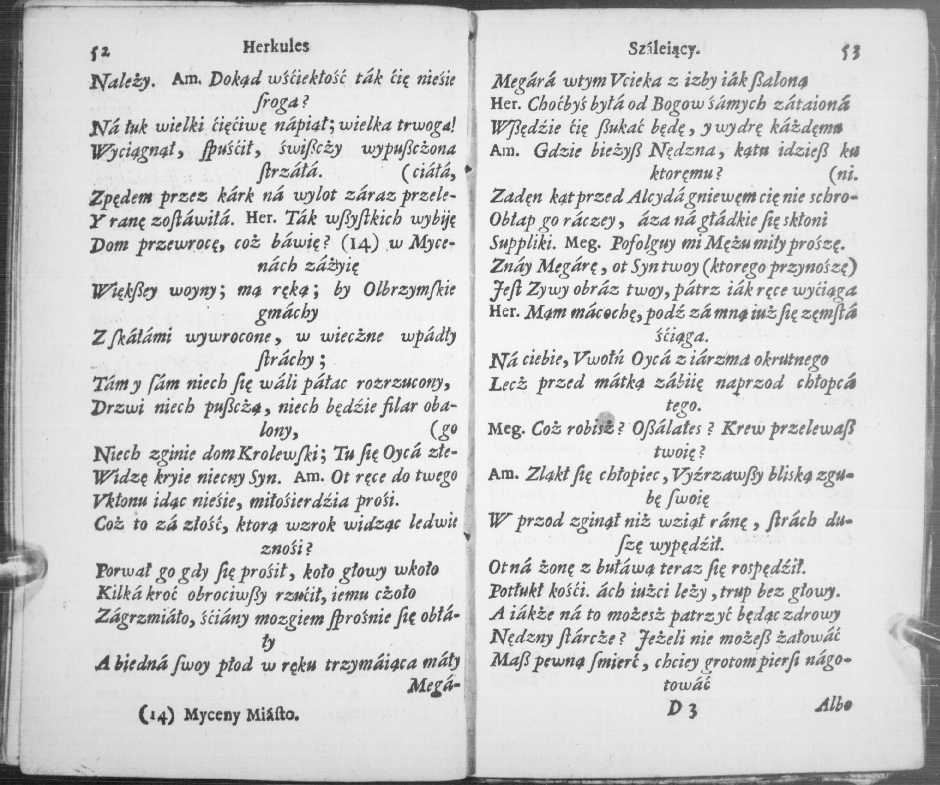 52 Herkules
Należy. Am. Dokąd wśćiekłość ták ćię nieśie
ſroga?
Ná łuk wielki ćięćiwę nápiął; wielka trwoga!
Wyciągnął, ſpuśćił, świßcży wypußcżona
ſtrzáłá. (ciáłá,
Zpędem przez kárk ná wylot záraz przele-
Y ranę zoſtáwiłá. Her. Ták wßyſtkich wybiję
Dom przewrocę, coż báwię? (14) w Myce-
nách záżyię
Więkßey woyny; mą ręką; by Olbrzymſkie
gmáchy
Z ſkáłámi wywrocone, w wiecżne wpádły
ſtráchy;
Tám y ſám niech ſię wáli páłac rozrzucony,
Drzwi niech pußcżą, niech będźie filar oba-
lony, (go
Niech zginie dom Krolewſki; Tu ſię Oycá złe-
Widzę kryie niecny Syn. Am. Ot ręce do twego
Vkłonu idąc nieśie, miłośierdźia prośi.
Coż to zá złość, ktorą wzrok widząc ledwie
znośi?
Porwał go gdy ſię prośił, koło głowy wkoło
Kilká kroć obrociwßy rzućił, iemu cżoło
Zágrzmiáło, śćiány mozgiem ſprośnie ſię obłá-
ły
A biedná ſwoy płod w ręku trzymáiąca máły
Megá-
(14) Myceny Miáſto.
Száleiący. 53
Megárá wtym Vcieka z izby iák ßaloną
Her. Choćbyś byłá od Bogow śámych zátaioná
Wßędźie ćię ßukáć będę, y wydrę káżdęmu
Am. Gdzie bieżyß Nędzna, kątu idzieß ku
ktoręmu? (ni.
Zaden kąt przed Alcydá gniewęm cię nie schro-
Obłap go ráczey, áza ná głádkie ſię skłoni
Suppliki. Meg. Pofolguy mi Mężu miły proszę.
Znáy Megárę, ot Syn twoy (ktorego przynoszę)
Jeſt Zywy obráz twoy, pátrz iák ręce wyćiąga
Her. Mąm mácochę, podź zá mną iuż ſię zęmſtá
śćiąga.
Ná ciebie, Vwołń Oycá z iárzma okrutnego
Lecż przed mátką zábiię naprzod chłopcá
tego.
Meg. Coż robisż? Oßálałeś? Krew przelewaß
twoię?
Am. Zląkł ſię chłopiec, Vyźrzawßy bliską zgu-
bę ſwoię
W przod zginął niż wziął ránę, ſtrách du-
ſzę wypędźił.
Ot ná żonę z buławą teraz ſię rospędźił.
Potłukł kośći. ách iużci leży, trup bez głowy.
A iákże ná to możesż patrzyć będąc zdrowy
Nędzny ſtárcże? Jeżeli nie możeß żałowáć
Maß pewną ſmierć, chciey grotom pierſi nágo-
towáć
D 3 Albo